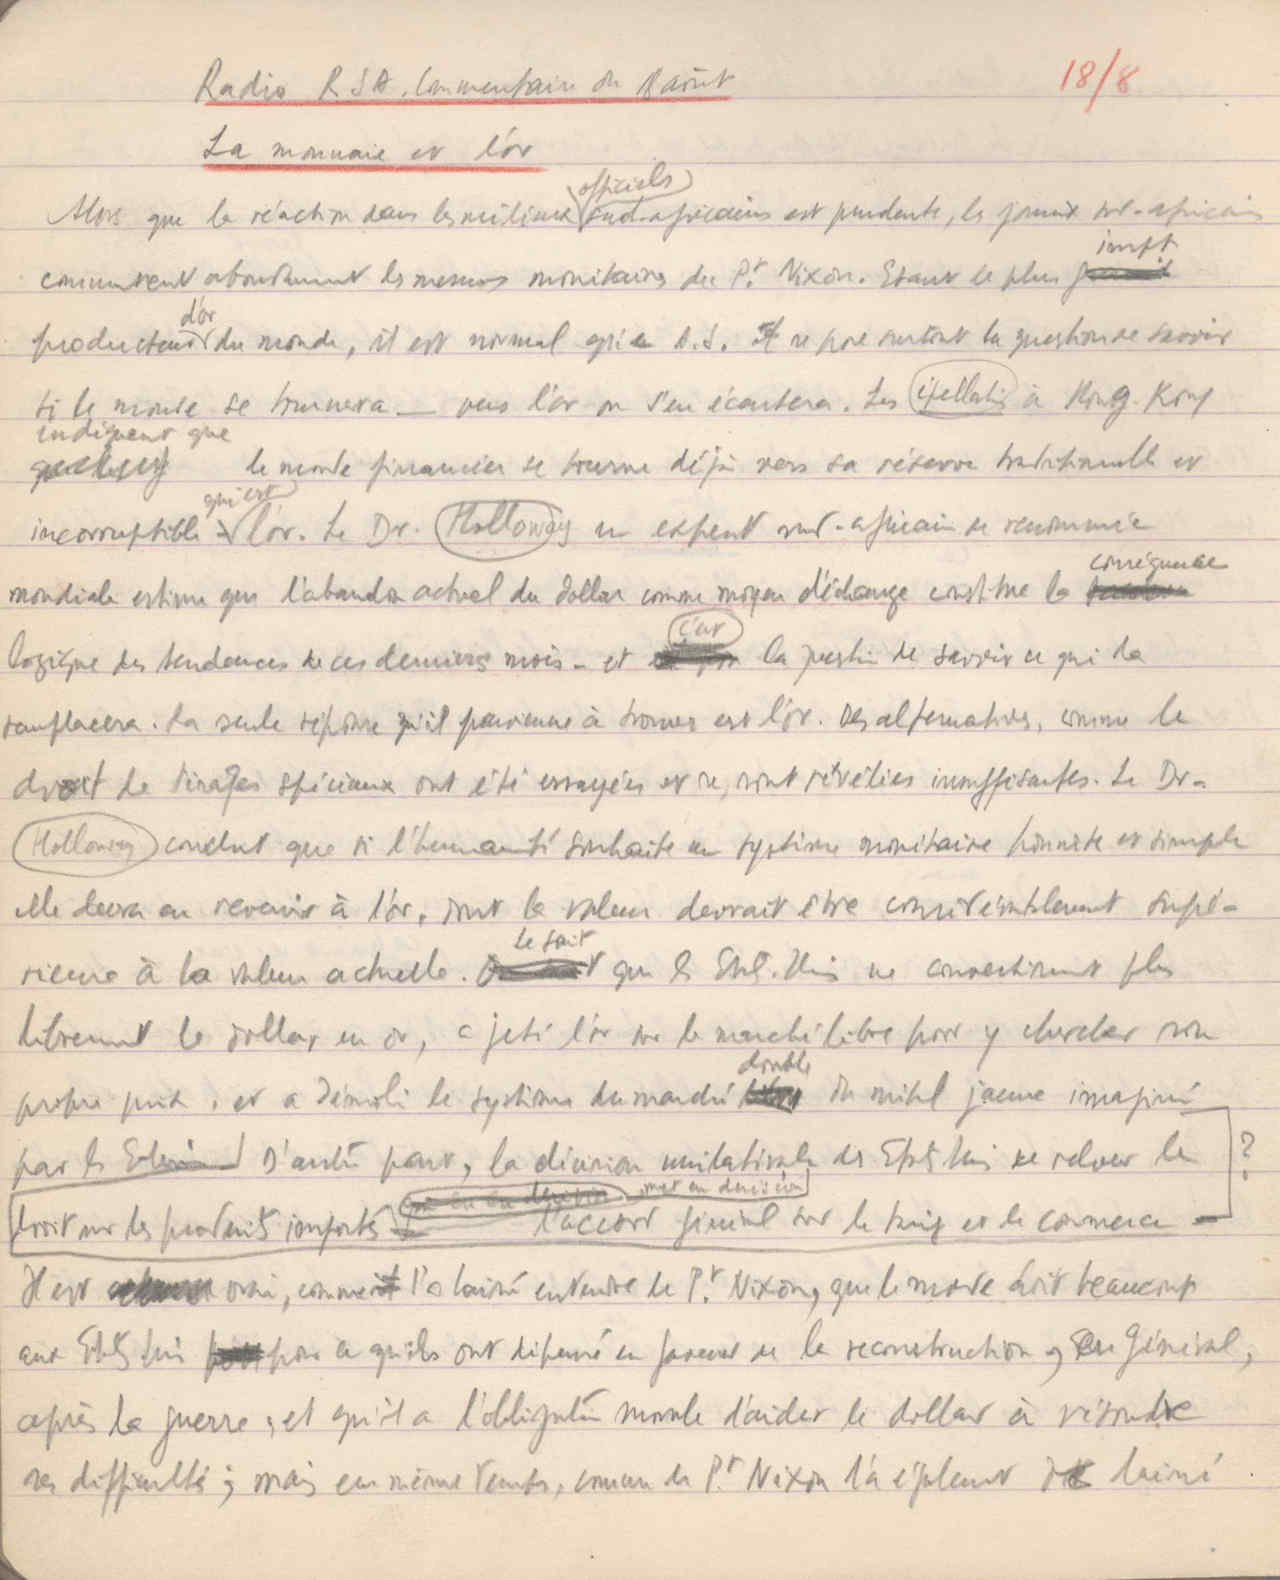 Radio RSA. Commentaire du 18 août
18/8
La monnaie et l'or
officiels
Alors que la réaction dans les milieux sud-africains est prudente, les journx sud-africains
impt
commentent abondamment les mesures monétaires du P.t Nixon. Etant le plus
d'or
producteur du monde, il est normal qu'en A.S. il se pose surtout la question de savoir
si le monde se tournera vers l'or ou s'en écartera. Les à Hong-Kong
indiquent que
le monde financier se tourne déjà vers sa réserve traditionnelle et
qui est
incorruptible l'or. Le Dr. Holloway un expert sud-africain de renommée
conséquence
mondiale estime que l'abandon actuel du dollar comme moyen d'échange constitue la
c'est
logique des tendances de ces derniers mois - et la question de savoir ce qui le
remplacera. La seule réponse qu'il parvienne à trouver est l'or. Des alternatives, comme le
droit de tirages spéciaux ont été essayées et se sont révélées insuffisantes. Le Dr.
Holloway conclut que si l'humanité souhaite un système monétaire honnête et simple
elle devra en revenir à l'or, dont la valeur devrait être considérablement supé-
le fait
rieure à la valeur actuelle. que les Etats-Unis ne convertissent plus
librement le dollar en or, a jeté l'or sur le marché libre pour y chercher son
double
propre prix, et a démoli le système du marché du métal jaune imaginé
par les D'autre part, la décision unilatérale des Etats Unis de relever les ?
met en dérision
droits sur les produits importés l'accord général sur le tarif et le commerce
Il est vrai, comme l'a laissé entendre le P.t Nixon, que le monde doit beaucoup
aux Etats Unis pour ce qu'ils ont dépensé en faveur de la reconstruction, en général,
après la guerre, et qu'il a l'obligation morale d'aider le dollar à résoudre
ses difficultés; mais en même temps, comme le P.t Nixon l'a également laissé